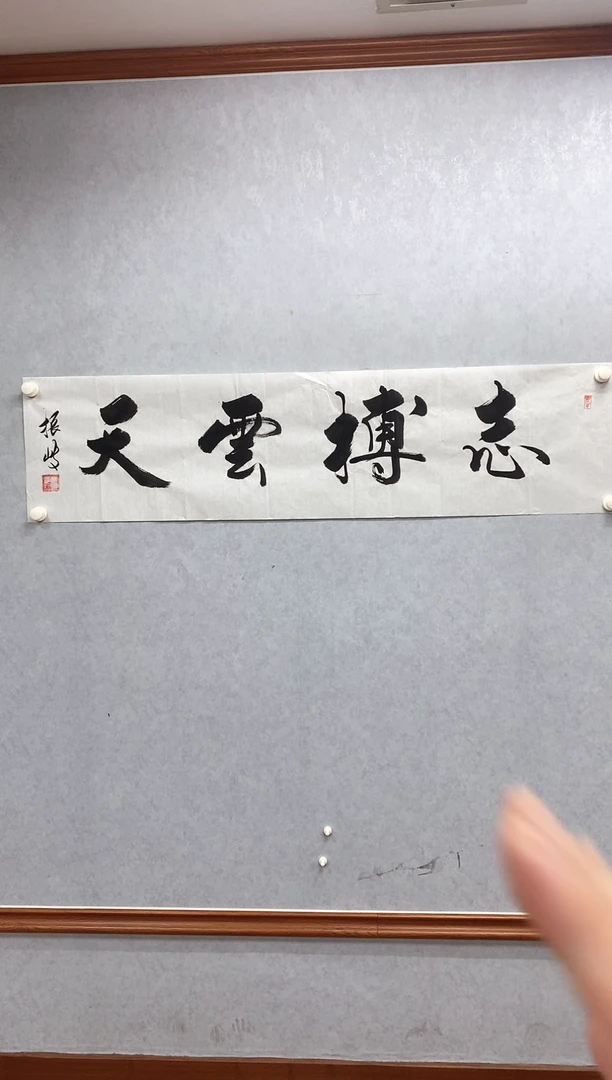 志搏雲天
振岐